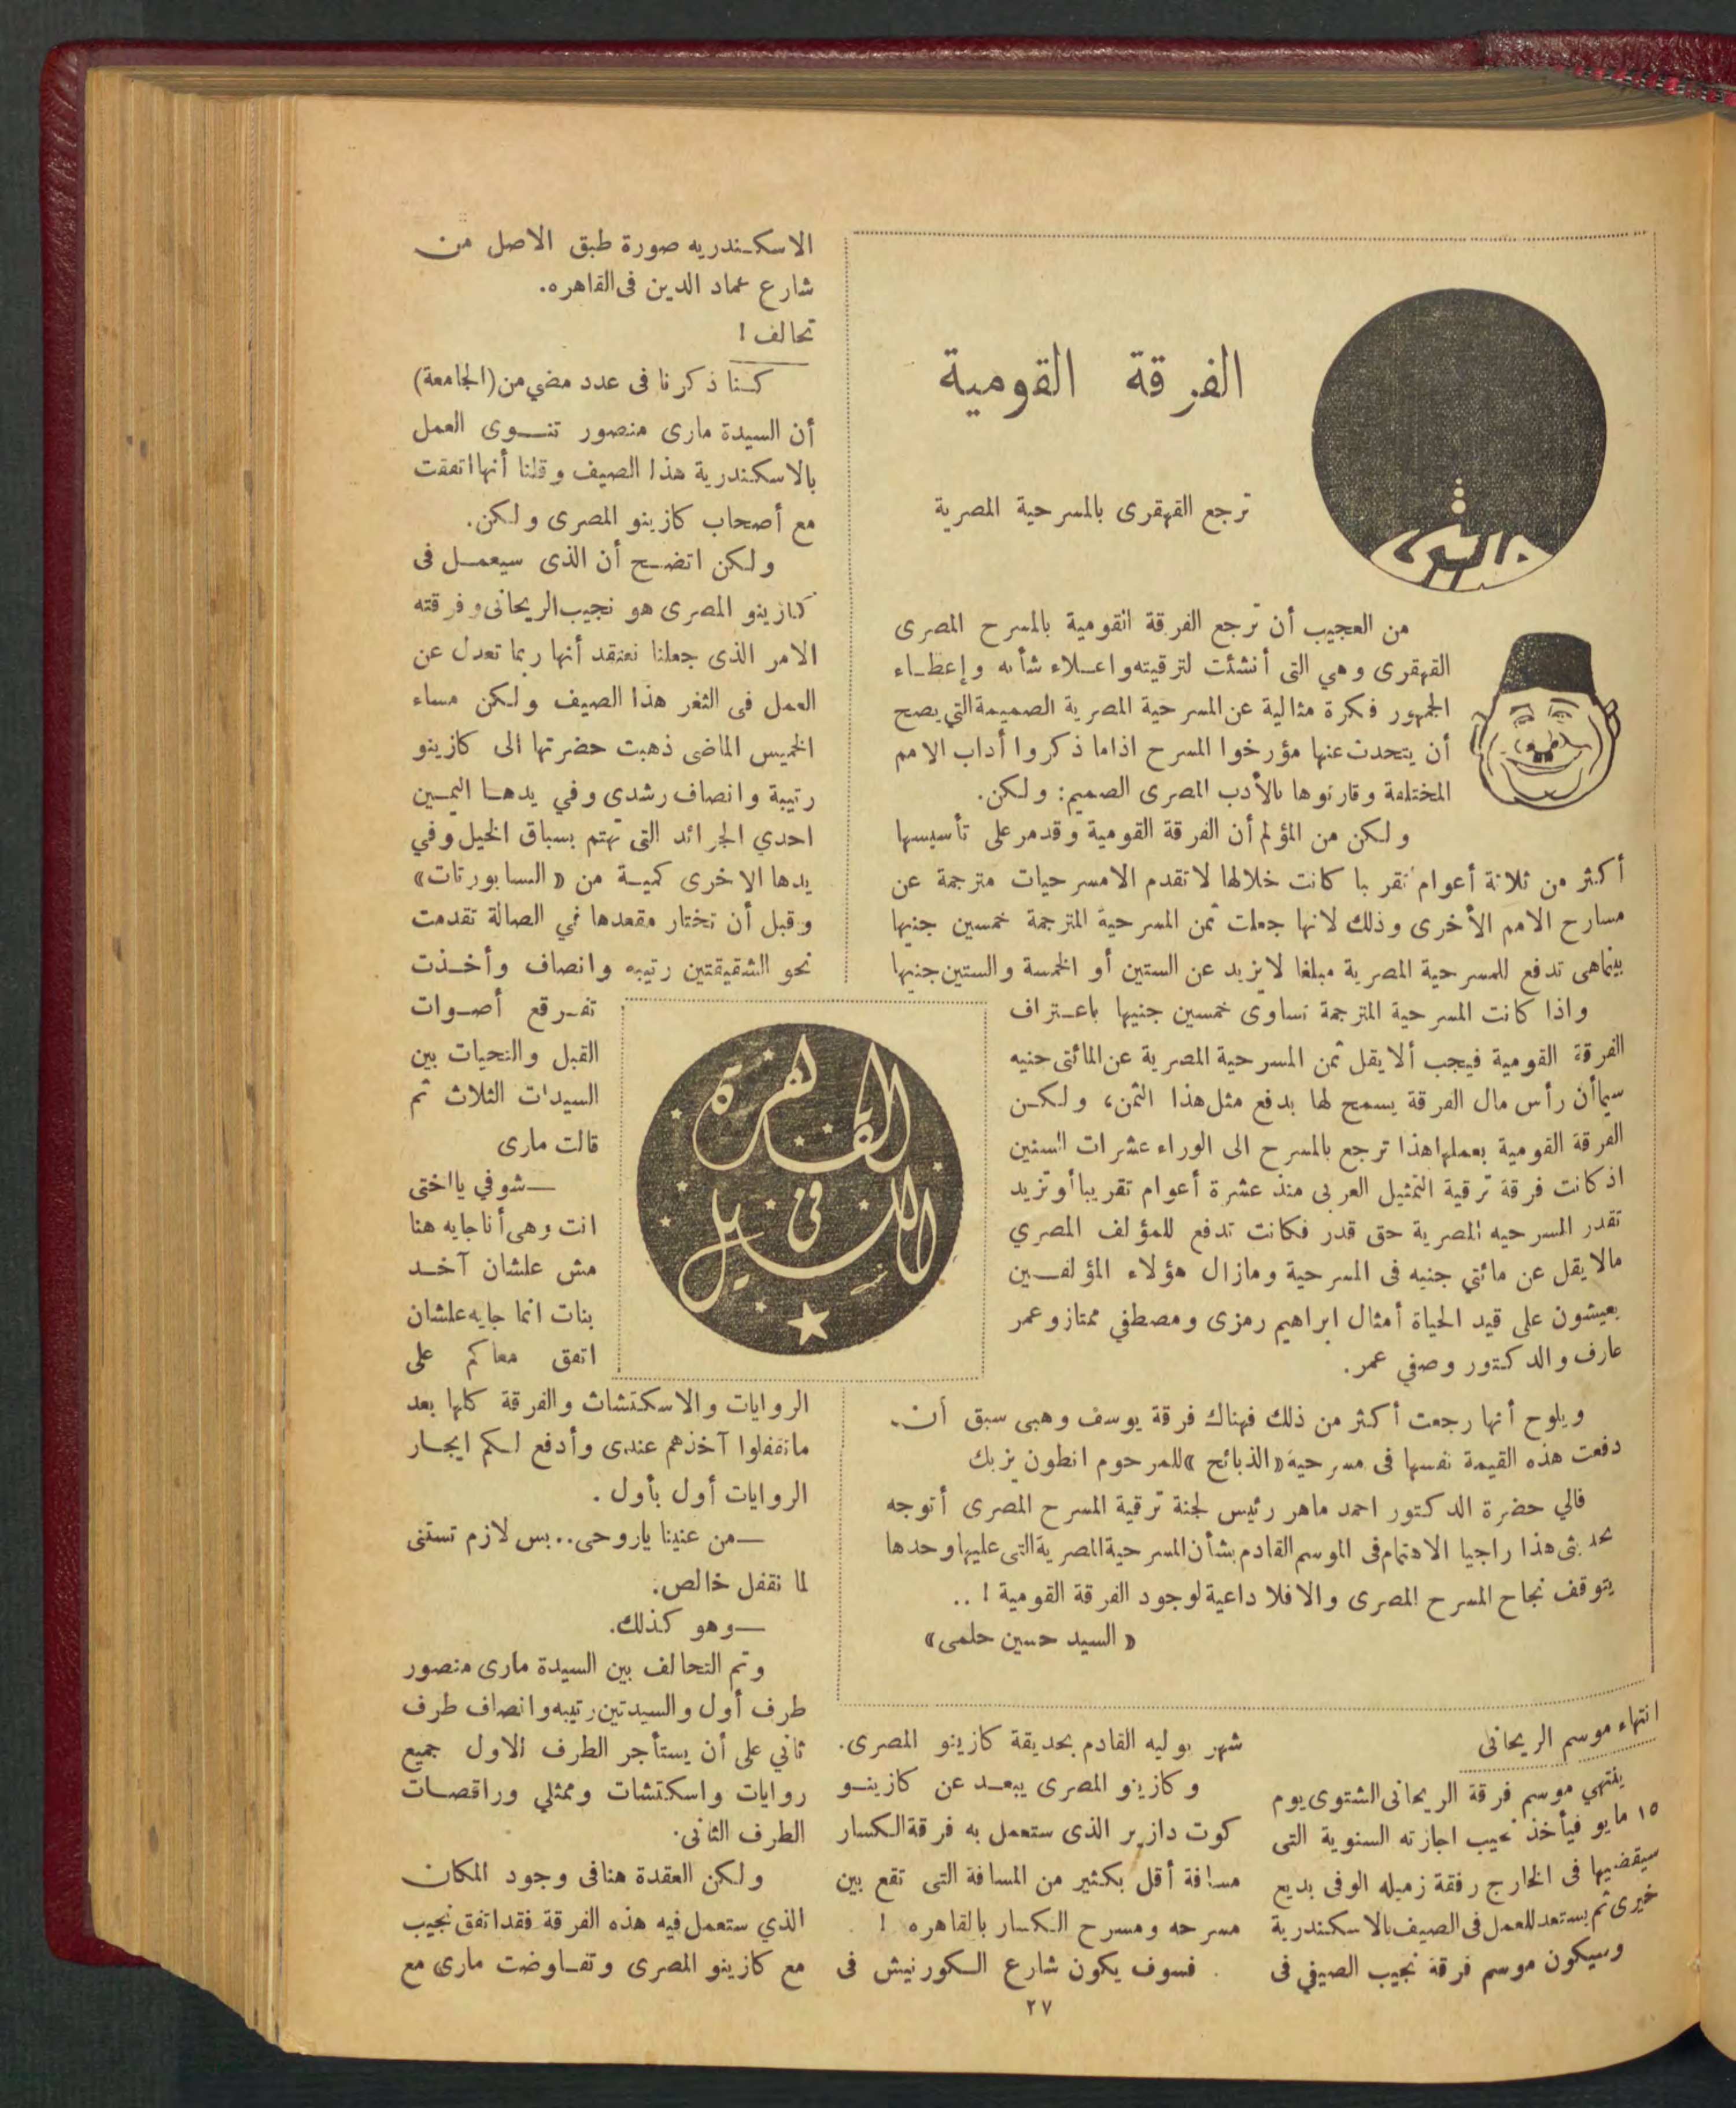 الفرقة القومية
ترجع القهقرى بالمسرحية المصرية
من العجيب أن ترجع الفرقة القومية بالمسرح المصرى
القهقرى وهي التى أنشئت لترقيته واعلاء شأنه وإعطاء
الجمهور فكرة مثالية عن المسرحية المصرية الصميمة التي يصح
أن يتحدث عنها مؤرخوا المسرح اذا ما ذكروا أداب الامم
المختلفة وقارنوها بالأدب المصرى الصميم: ولكن.
ولكن من المؤلم أن الفرقة القومية وقد مر على تأسيسها
أكثر من ثلاثة أعوام تقريبا كانت خلالها لا تقدم الا مسرحيات مترجمة عن
مسارح الامم الأخرى وذلك لانها جعلت ثمن المسرحية المترجمة خمسين جنيها
بينما هى تدفع للمسرحية المصرية مبلغا لا يزيد عن الستين أو الخمسة والستين جنيها
واذا كانت المسرحية المترجمة تساوى خمسين جنيها باعتراف
الفرقة القومية فيجب ألا يقل ثمن المسرحية المصرية عن المائتى جنيه
سيما أن رأس مال الفرقة يسمح لها بدفع مثل هذا الثمن، ولكن
الفرقة القومية بعملها هذا ترجع بالمسرح الى الوراء عشرات السنين
اذ كانت فرقة ترقية التمثيل العربى منذ عشرة أعوام تقريبا أو تزيد
تقدر المسرحيه المصرية حق قدر فكانت تدفع للمؤلف المصري
مالا يقل عن مائتي جنيه فى المسرحية ومازال هؤلاء المؤلفين
يعيشون على قيد الحياة أمثال ابراهيم رمزى ومصطفي ممتاز وعمر
عارف والدكتور وصفي عمر.
ويلوح أنها رجعت أكثر من ذلك فهناك فرقة يوسف وهبى سبق أن
دفعت هذه القيمة نفسها فى مسرحية «الذبائح» للمرحوم انطون يزبك
فالي حضرة الدكتور احمد ماهر رئيس لجنة ترقية المسرح المصرى أتوجه
بحديثى هذا راجيا الاهتمام فى الموسم القادم بشأن المسرحية المصرية التى عليها وحدها
يتوقف نجاح المسرح المصرى والا فلا داعية لوجود الفرقة القومية ! ..
« السيد حسين حلمى»
القاهرة
فى
الليل
انتهاء موسم الريحانى
ينتهي موسم فرقة الريحانى الشتوى يوم
١٥ مايو فيأخذ نجيب اجازته السنوية التى
سيقضيها فى الخارج رفقة زميله الوفى بديع
خيرى ثم يستعد للعمل فى الصيف بالاسكندرية
وسيكون موسم فرقة نجيب الصيفي فى
شهر يوليه القادم بحديقة كازينو المصرى.
وكازينو المصرى يبعد عن كازينو
كوت دازير الذى ستعمل به فرقة الكسار
مسافة أقل بكثير من المسافة التى تقع بين
مسرحه ومسرح الكسار بالقاهره !
فسوف يكون شارع الكورنيش فى
الاسكندريه صورة طبق الاصل من
شارع عماد الدين فى القاهره.
تحالف !
كنا ذكرنا فى عدد مضي من (الجامعة)
أن السيدة مارى منصور تنوى العمل
بالاسكندرية هذا الصيف وقلنا أنها اتفقت
مع أصحاب كازينو المصرى ولكن.
ولكن اتضح أن الذى سيعمل فى
كازينو المصرى هو نجيب الريحانى وفرقته
الامر الذى جعلنا نعتقد أنها ربما تعدل عن
العمل فى الثغر هذا الصيف ولكن مساء
الخميس الماضى ذهبت حضرتها الى كازينو
رتيبة وانصاف رشدى وفي يدها اليمين
احدي الجرائد التى تهتم بسباق الخيل وفي
يدها الاخرى كمية من «السابورتات»
وقبل أن تختار مقعدها في الصالة تقدمت
نحو الشقيقتين رتيبه وانصاف وأخذت
تفرقع أصوات
القبل والتحيات بين
السيدات الثلاث ثم
قالت مارى
— شوفي يا اختى
انت وهى أنا جايه هنا
مش علشان آخد
بنات انما جايه علشان
اتفق معاكم على
الروايات والاسكتشات والفرقة كلها بعد
ما تقفلوا آخذهم عندى وأدفع لكم ايجار
الروايات أول بأول .
— من عنينا ياروحى.. بس لازم تستنى
لما نقفل خالص.
— وهو كذلك.
وتم التحالف بين السيدة مارى منصور
طرف أول والسيدتين رتيبه وانصاف طرف
ثاني على أن يستأجر الطرف الاول جميع
روايات واسكتشات وممثلي وراقصات
الطرف الثانى.
ولكن العقدة هنا فى وجود المكان
الذي ستعمل فيه هذه الفرقة فقد اتفق نجيب
مع كازينو المصرى وتفاوضت مارى مع
٢٧